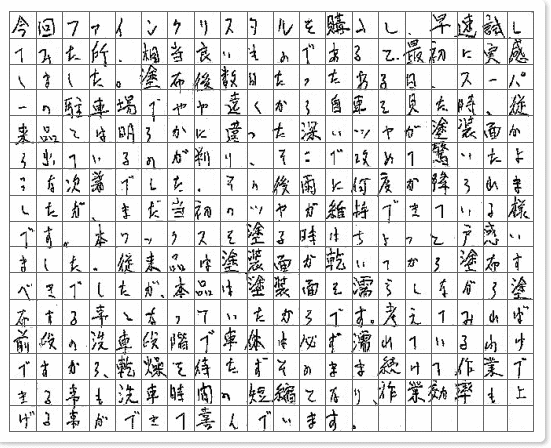 今回ファインクリスタルを購入し、早速試し
てみた所、相当良いものであると、最初に実感
しました。塗布後数日たったある日、スーパ
ーの駐車場でやや遠くから自車を見た時、従
来品とは明らかに違った深いツヤが塗装面か
ら出ているのが判り、そこで改めて驚いたよ
うな次第でした。その後雨に何度か降られま
したが、まだ当初のツヤが維持できている様
です。本ワックスを塗る時はちょっと戸惑い
ました。従来品は塗装面が乾いてから塗布す
べきでしたが、本品は塗装面を濡らしながら塗
布する事となっていたからです。考えてみれば
前段の洗車段階で車体は必ず濡れているわけ
ですから、乾燥を待たずそのまま続けて作業で
きる事も洗車時間の短縮となり、作業効率も上
げる事ができて喜んでいます。